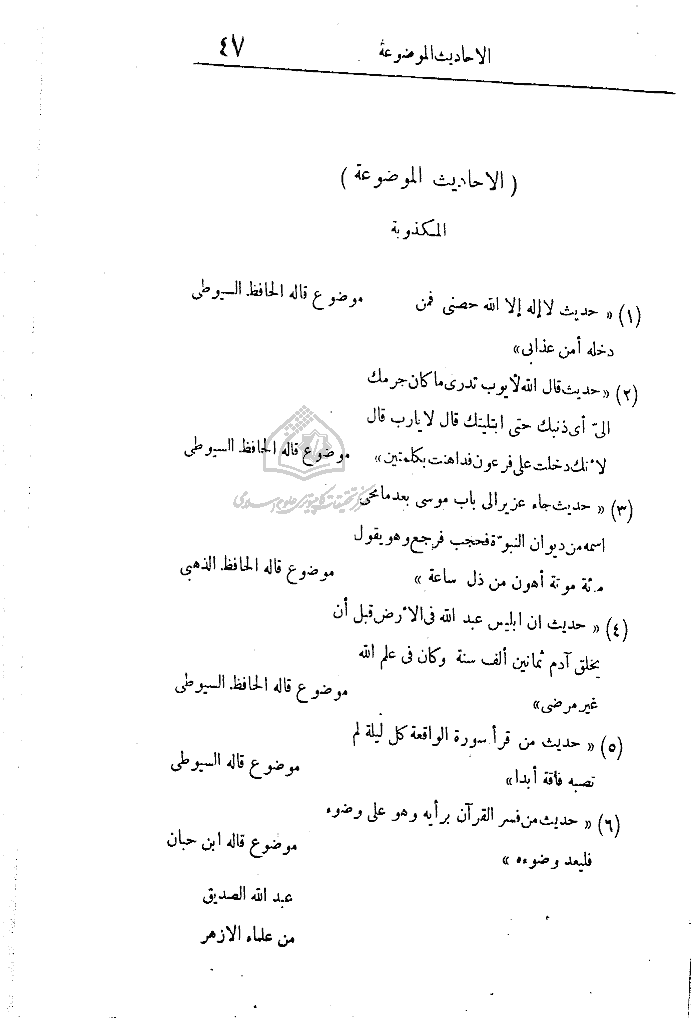 الاحاديث الموضوعة ٤٧
( الاحاديث الموضوعة )
المكذوبة
(١) « حديث لا إله إلا الله حصنى فمن موضوع قاله الحافظ السيوطى
دخله أمن عذابى »
(٢) « حديث قال الله لأيوب تدرى ما كان جرمك
الىّ أى ذنبك حتى ابتليتك قال لا يارب قال
لأنك دخلت على فرعون فداهنت بكلمتين » موضوع قاله الحافظ السيوطى
مركز تحقيقات كامپيوترى علوم اسلامى
(٣) « حديث جاء عزير الى باب موسى بعد ما محى
اسمه من ديوان النبوّة فحجب فرجع وهو يقول
مئة موتة أهون من ذل ساعة » موضوع قاله الحافظ الذهبى
(٤) « حديث ان ابليس عبد الله فى الأرض قبل أن
يخلق آدم ثمانين ألف سنة وكان فى علم الله
غير مرضى » موضوع قاله الحافظ السيوطى
(٥) « حديث من قرأ سورة الواقعة كل ليلة لم
تصبه فاقة أبدا » موضوع قاله السيوطى
(٦) « حديث من فسر القرآن برأيه وهو على وضوء
فليعد وضوءه » موضوع قاله ابن حبان
عبد الله الصديق
من علماء الازهر